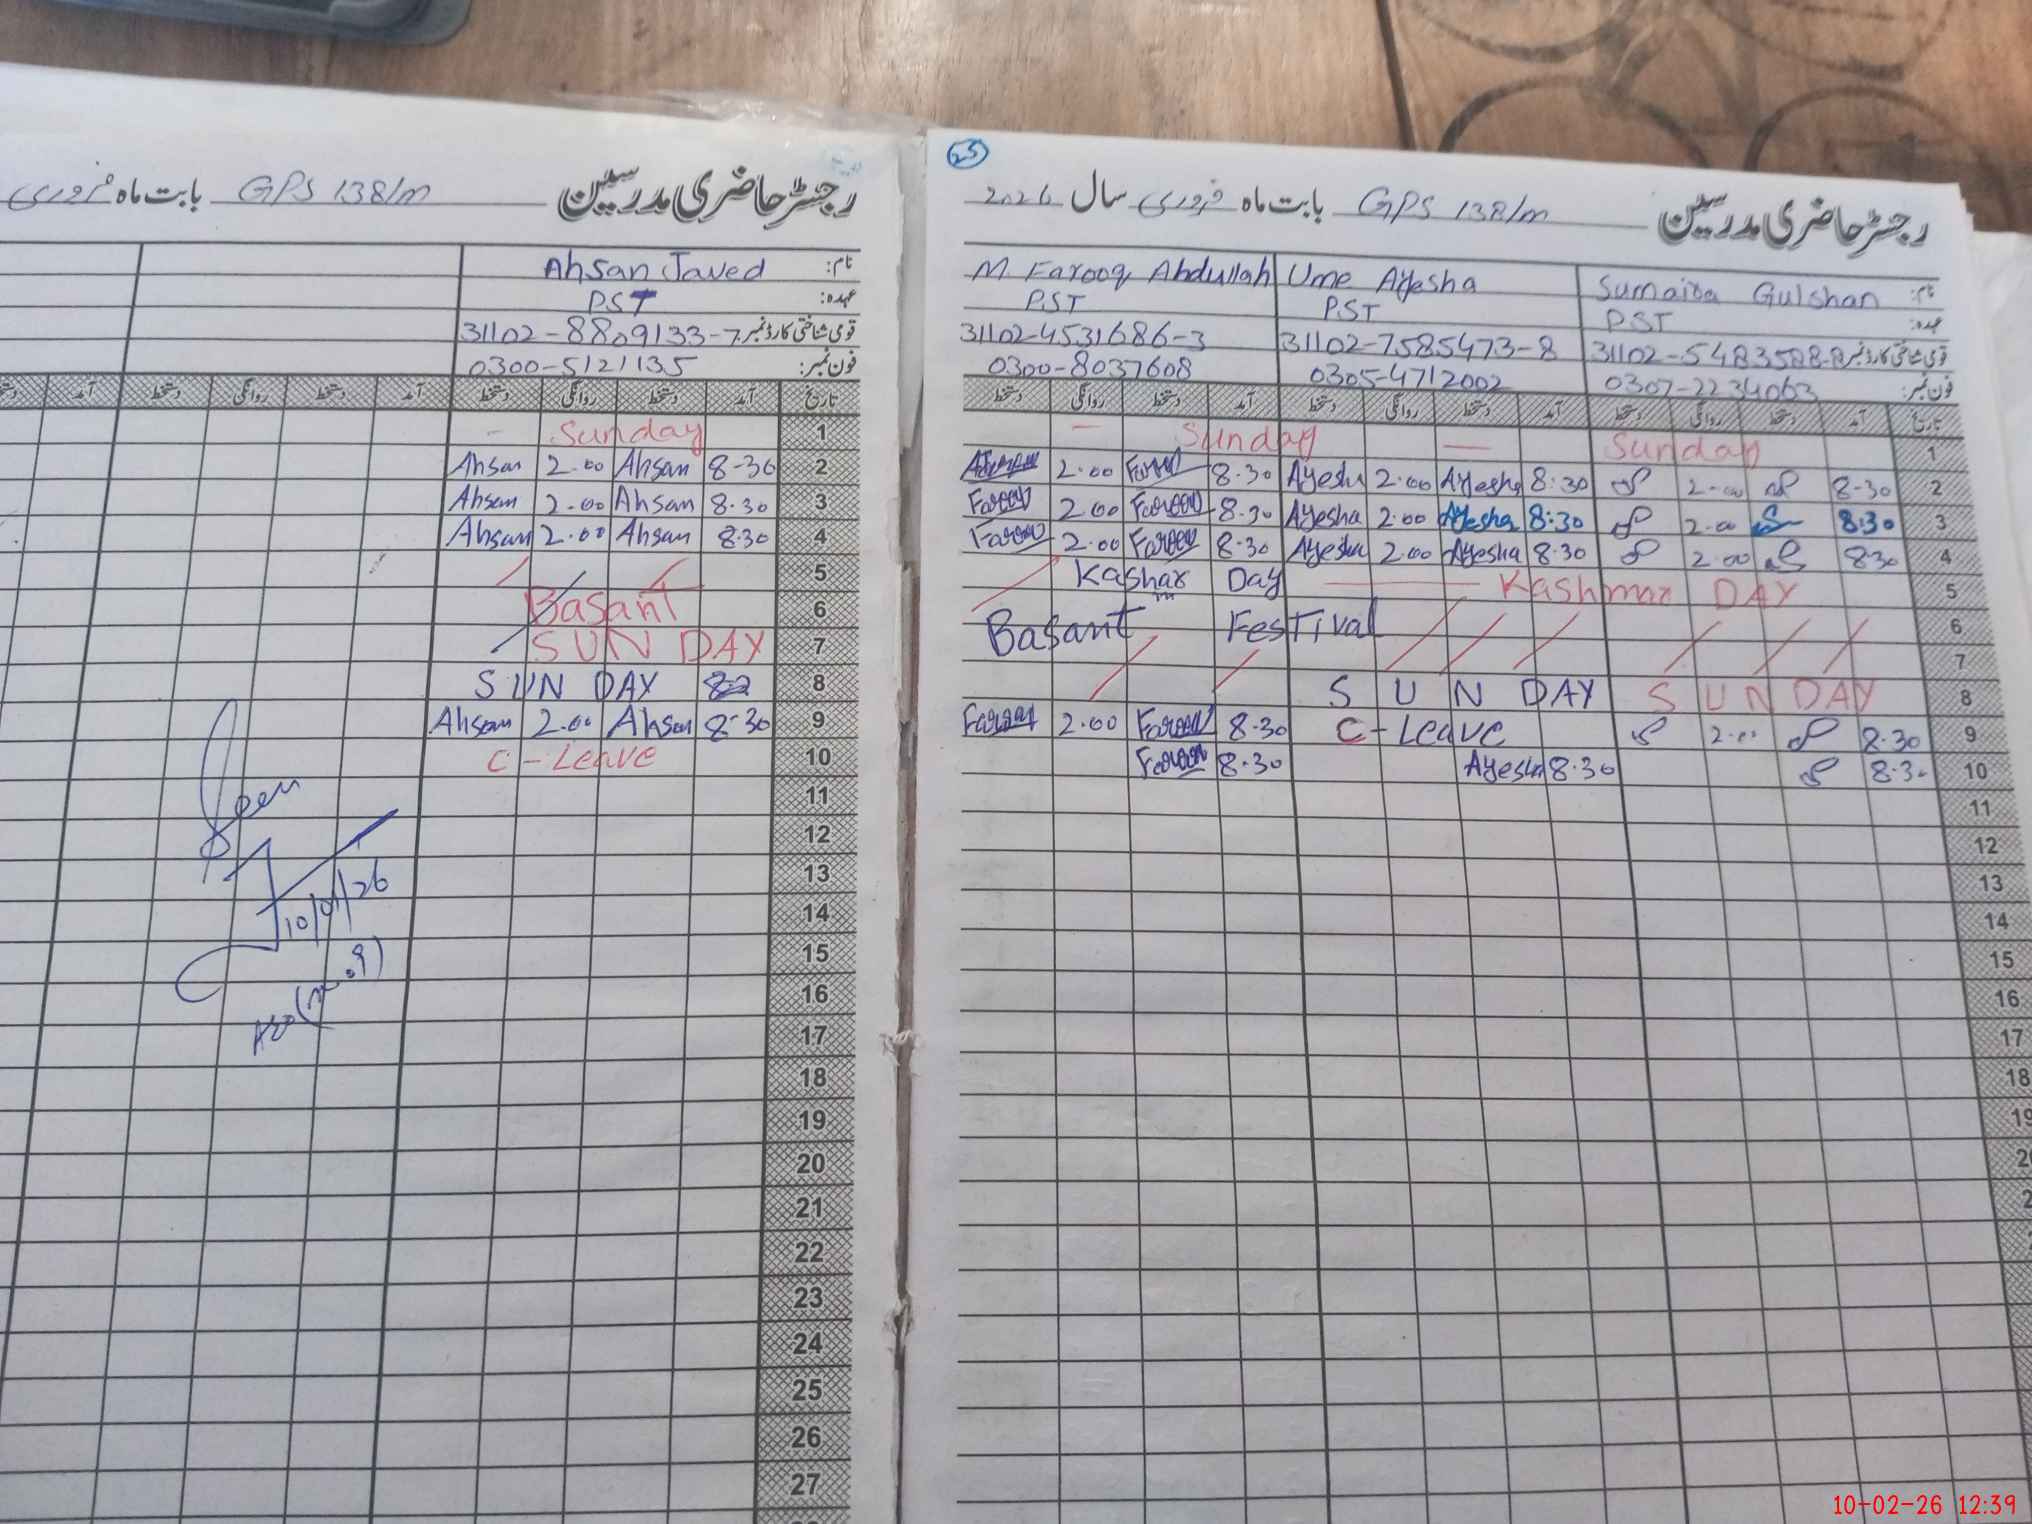 رجسٹر حاضری مدرسین GPS 138/m بابت ماہ فروری
نام: Ahsan Javed
عہدہ: PST
قومی شناختی کارڈ نمبر: 31102-8809133-7
فون نمبر: 0300-5121135
تاریخ آمد دستخط روانگی دستخط آمد دستخط روانگی دستخط آمد
1 Sunday -
2 8-30 Ahsan 2.00 Ahsan
3 8.30 Ahsan 2.00 Ahsan
4 8.30 Ahsan 2.00 Ahsan
5
6 Basant
7 SUN DAY
8 SUN DAY
9 8-30 Ahsan 2.00 Ahsan
10 C-Leave
11
12
13
14
15
16
17
18
19
20
21
22
23
24
25
26
27
Seen
25
رجسٹر حاضری مدرسین GPS 138/m بابت ماہ فروری سال 2026
نام: Sumaira Gulshan Ume Ayesha M. Farooq Abdullah
عہدہ: PST PST PST
قومی شناختی کارڈ نمبر: 31102-5483588-8 31102-7585473-8 31102-4531686-3
فون نمبر: 0307-2234063 0305-4712002 0300-8037608
تاریخ آمد دستخط روانگی دستخط آمد دستخط روانگی دستخط آمد دستخط روانگی دستخط
1 Sunday - Sunday -
2 8-30 2.00 8:30 Ayesha 2.00 Ayesha 8.30 2.00
3 8:30 2.00 8:30 Ayesha 2.00 Ayesha 8.30 Farooq 2.00 Farooq
4 8.30 2.00 8.30 Ayesha 2.00 Ayesha 8.30 Farooq 2.00 Farooq
5 Kashmar DAY Kashar Day
6 Basant Festival
7
8 SUN DAY SUN DAY
9 8.30 2.00 C-Leave 8.30 Farooq 2.00 Farooq
10 8.30 8.30 Ayesha 8.30 Farooq
11
12
13
14
15
16
17
18
19
10-02-26 12:39